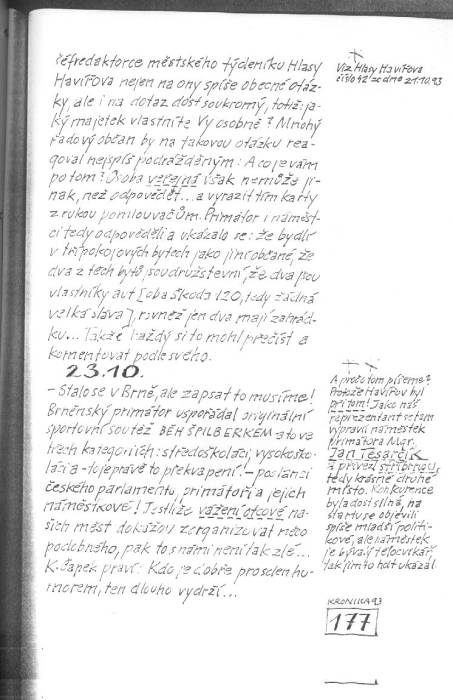 šéfredaktorce městského týdeníku Hlasy
Havířova nejen na ony spíše obecné otáz-
ky, ale i na dotaz dost soukromý, totiž: ja-
ký majetek vlastníte Vy osobně? Mnohý
řadový občan by na takovou otázku rea-
goval nejspíš podrážděným: A co je vám
po tom? Osoba veřejná však nemůže ji-
nak, než odpovědět... a vyrazit tím karty
z rukou pomlouvačům. Primátor i náměst-
ci tedy odpověděli a ukázalo se: že bydlí
v třípokojových bytech jako jiní občané, že
dva z těch bytů jsou družstevní, že dva jsou
vlastníky aut [oba Škoda 120, tedy žádná
velká sláva], rovněž jen dva mají zahrád-
ku... Takže každý si to mohl přečíst a
komentovat podle svého.
23.10.
- Stalo se v Brně, ale zapsat to musíme!
Brněnský primátor uspořádal originální
sportovní soutěž BĚH ŠPILBERKEM a to ve
třech kategoriích: středoškoláci, vysokoško-
láci a - to je právě to překvapení. - poslanci
českého parlamentu, primátoři a jejich
náměstkové! Jestliže vážení otcové na-
šich měst dokážou zorganizovat něco
podobného, pak to s námi není tak zlé...
K. Čapek praví: Kdo je dobře prosolen hu-
morem, ten dlouho vydrží...
Viz Hlasy Havířova
číslo 42 ze dne 21.10.93
A proč o tom píšeme?
Protože Havířov byl
při tom! Jako náš
reprezentant se tam
vypravil náměstek
primátora Mgr.
Jan Tesarčík
a přivezl stříbrnou,
tedy krásné druhé
místo. Konkurence
byla dost silná, na
startu se objevili
spíše mladší politi-
kové, ale náměstek
je bývalý tělocvikář,
tak jim to hdt ukázal.
KRONIKA 93
177